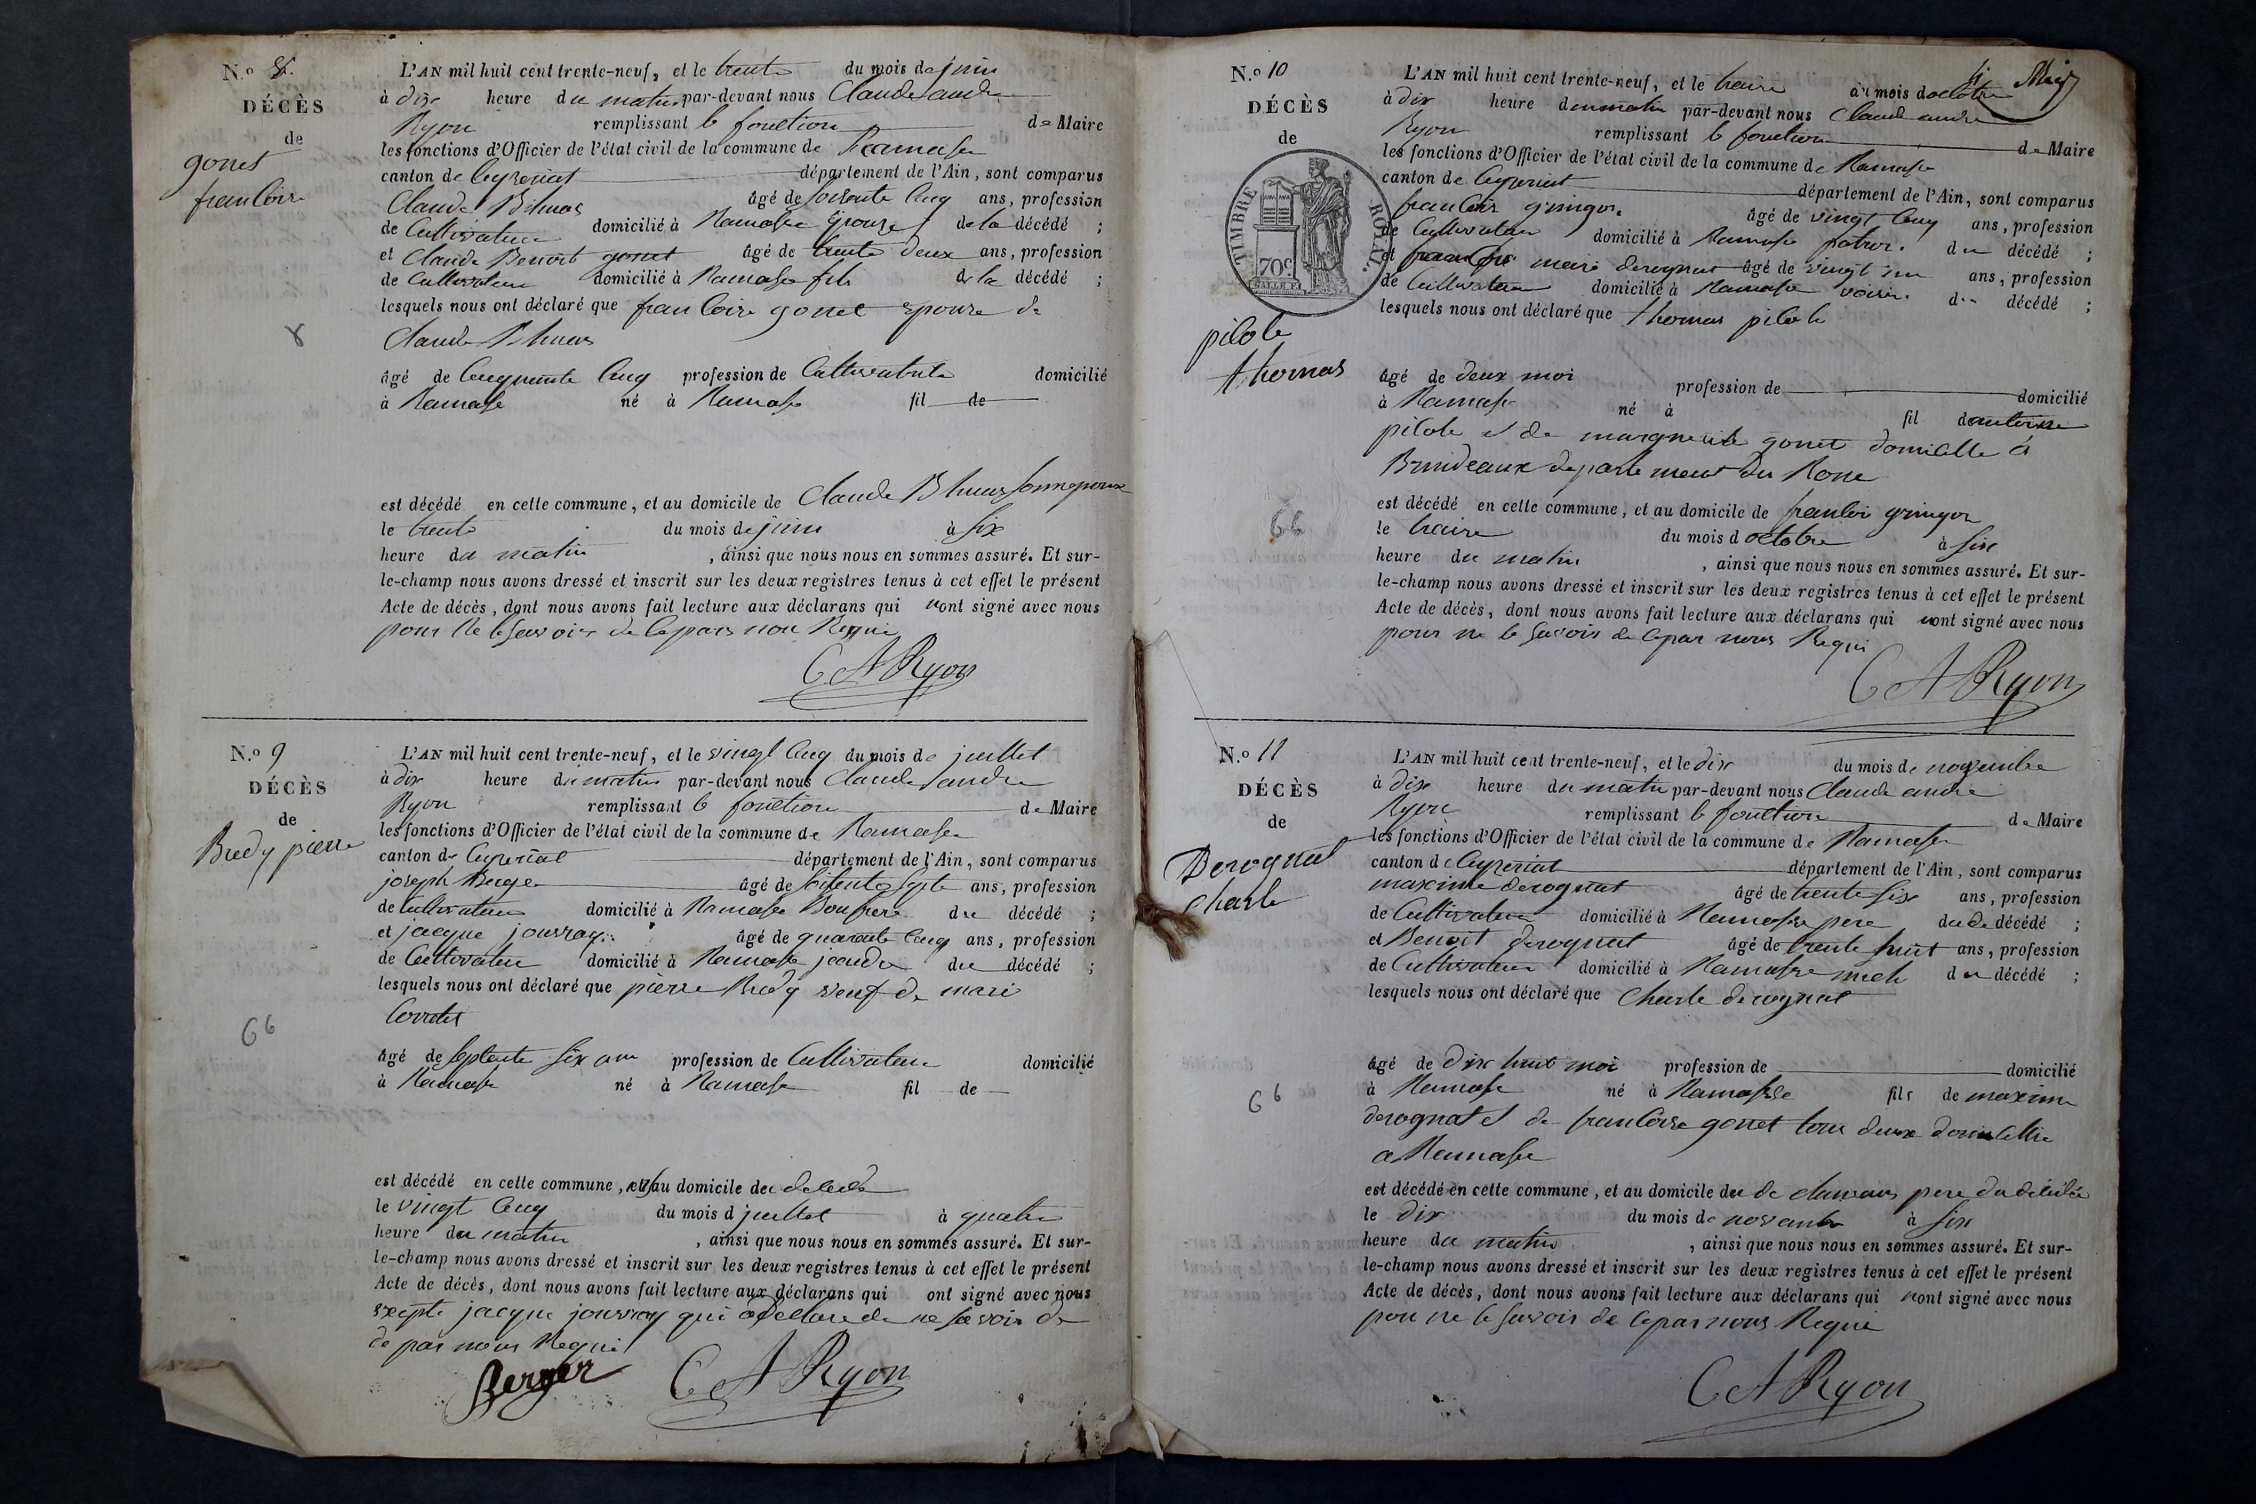 N.o 8.
DÉCÈS
de
gonet
francoise
8
L'AN mil huit cent trente-neuf, et le trente du mois de juin
à dix heure du matin par-devant nous Claude andre
Ryon remplissant le fonction de Maire
les fonctions d'Officier de l'état civil de la commune de Ramasse
canton de Ceyzeriat département de l'Ain, sont comparus
Claude âgé de soisente cinq ans, profession
de Cultivateur domicilié à Ramasse Epouse de la décédé ;
et Claude Benoit gonet âgé de trente deux ans, profession
de Cultivateur domicilié à Ramasse fils de la décédé ;
lesquels nous ont déclaré que francoise gonet epouse de
Claude
âgé de Cinquante Cinq profession de Cultivatrice domicilié
à Ramasse né à Ramasse fil de
est décédé en cette commune, et au domicile de Claude son epoux
le trente du mois de juin à six
heure du matin, ainsi que nous nous en sommes assuré. Et sur-
le-champ nous avons dressé et inscrit sur les deux registres tenus à cet effet le présent
Acte de décès, dont nous avons fait lecture aux déclarans qui n'ont signé avec nous
pour ne le savoir de ce par nou Requi
C A Ryon
N.o 9
DÉCÈS
de
Bredy pierre
66
L'AN mil huit cent trente-neuf, et le vingt cinq du mois de juillet
à dix heure du matin par-devant nous Claude andre
Ryon remplissant le fonction de Maire
les fonctions d'Officier de l'état civil de la commune de Ramasse
canton de Ceyzeriat département de l'Ain, sont comparus
joseph Berger âgé de soisente septe ans, profession
de Cultivateur domicilié à Ramasse Beaufrere du décédé ;
et jacque jouvray âgé de quarante cinq ans, profession
de Cultivateur domicilié à Ramasse jeandre du décédé ;
lesquels nous ont déclaré que pierre Bredy veuf de mari
âgé de septente six ans profession de Cultivateur domicilié
à Ramasse né à Ramasse fil de
est décédé en cette commune, et au domicile du décédé
le vingt cinq du mois d juillet à quatre
heure du matin, ainsi que nous nous en sommes assuré. Et sur-
le-champ nous avons dressé et inscrit sur les deux registres tenus à cet effet le présent
Acte de décès, dont nous avons fait lecture aux déclarans qui ont signé avec nous
excepte jacque jouvray qui a declare de ne savoir de
ce par nous Requi
Berger C A Ryon
N.o 10
DÉCÈS
de
TIMBRE ROYAL
70c
pilole
thomas
66
L'AN mil huit cent trente-neuf, et le traise du mois doctobre
à dix heure du matin par-devant nous Claude andre
Ryon remplissant le fonction de Maire
les fonctions d'Officier de l'état civil de la commune de Ramasse
canton de Ceyzeriat département de l'Ain, sont comparus
francois gringon âgé de vingt cinq ans, profession
de Cultivateur domicilié à Ramasse du décédé ;
et marie derognat âgé de vingt un ans, profession
de Cultivateur domicilié à Ramasse voisin du décédé ;
lesquels nous ont déclaré que thomas pilole
âgé de deux moi profession de domicilié
à Ramasse né à fil dantoine
pilole et de marguerite gonet domicille à
Brindeaux departement du Rone
est décédé en cette commune, et au domicile de francoi gringon
le traise du mois d octobre à six
heure du matin, ainsi que nous nous en sommes assuré. Et sur-
le-champ nous avons dressé et inscrit sur les deux registres tenus à cet effet le présent
Acte de décès, dont nous avons fait lecture aux déclarans qui n'ont signé avec nous
pour ne le savoir de ce par nous Requi
C A Ryon
N.o 11
DÉCÈS
de
Derognat
Charle
66
L'AN mil huit cent trente-neuf, et le dix du mois de novembre
à dix heure du matin par-devant nous Claude andre
Ryon remplissant le fonction de Maire
les fonctions d'Officier de l'état civil de la commune de Ramasse
canton de Ceyzeriat département de l'Ain, sont comparus
maxime derognat âgé de trente six ans, profession
de Cultivateur domicilié à Ramasse pere du décédé ;
et Benoit derognat âgé de trente huit ans, profession
de Cultivateur domicilié à Ramasse oncle du décédé ;
lesquels nous ont déclaré que Charle derognat
âgé de dix huit moi profession de domicilié
à Ramasse né à Ramasse fils de maxime
derognat et de francoise gonet tous deux domicillie
a Ramasse
est décédé en cette commune, et au domicile du pere du décédé
le dix du mois de novembre à six
heure du matin, ainsi que nous nous en sommes assuré. Et sur-
le-champ nous avons dressé et inscrit sur les deux registres tenus à cet effet le présent
Acte de décès, dont nous avons fait lecture aux déclarans qui n'ont signé avec nous
pour ne le savoir de ce par nous Requi
C A Ryon